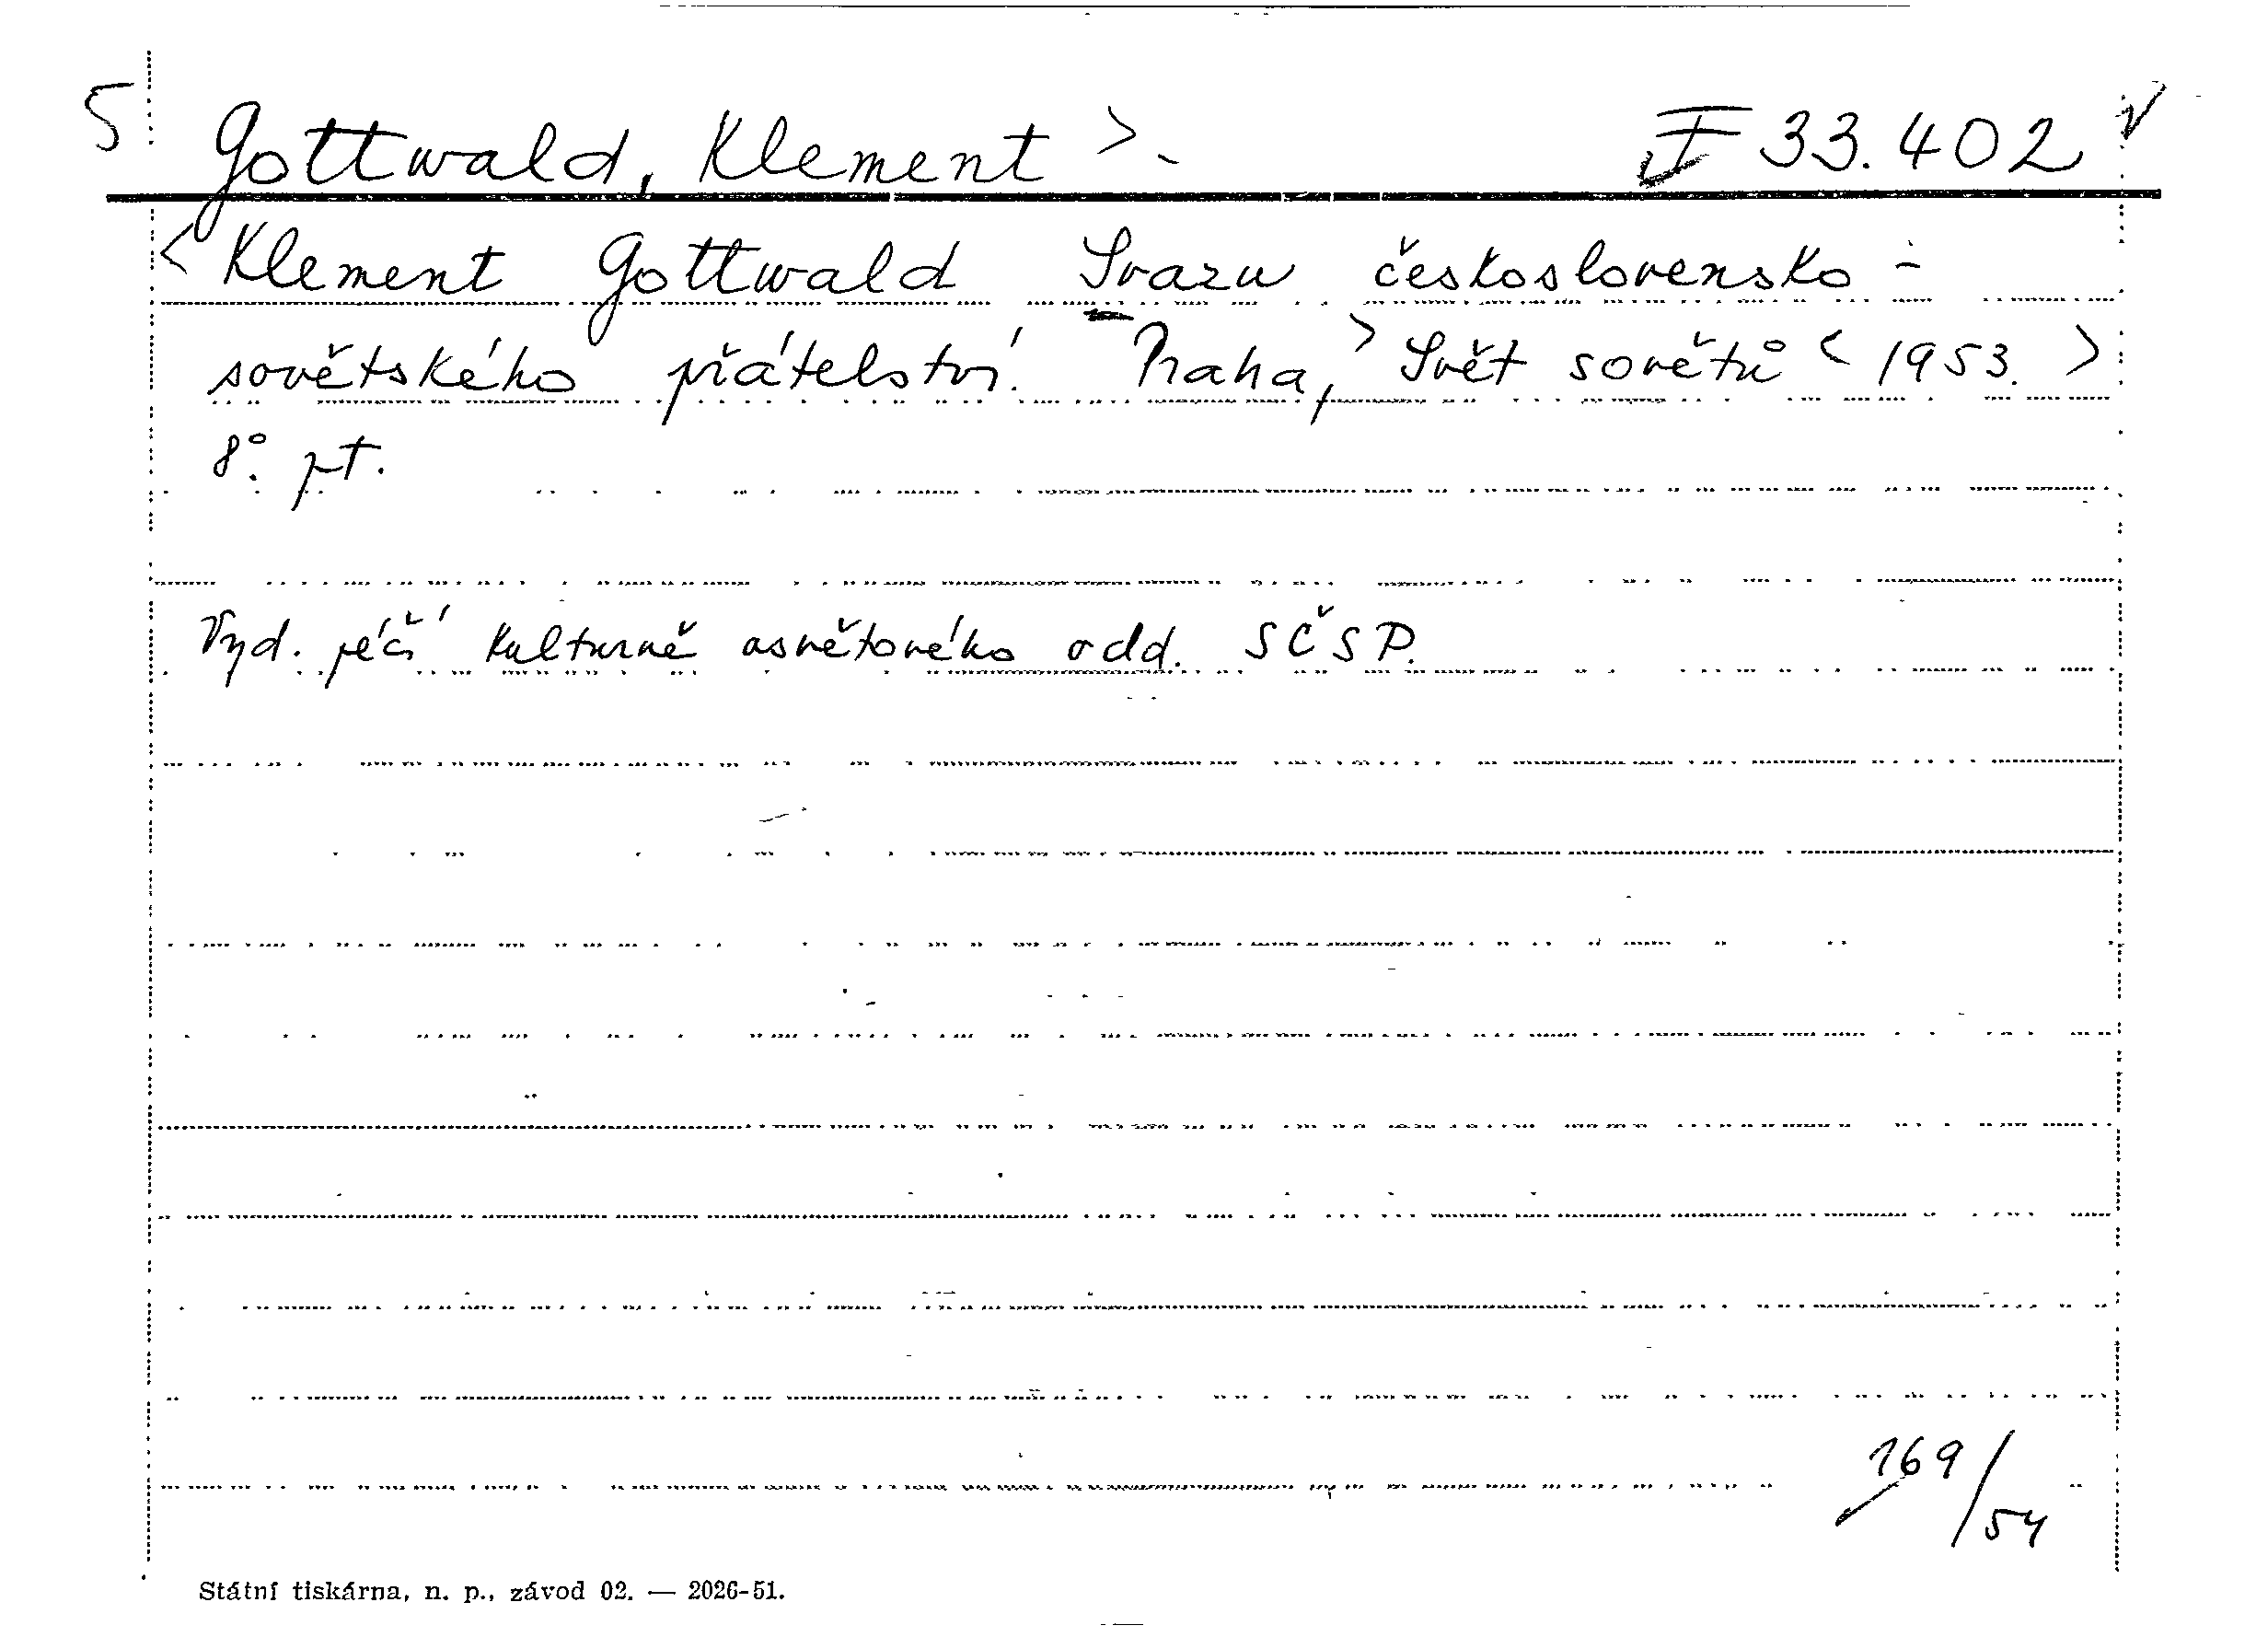 5 Gottwald, Klement > - I 33.402
< Klement Gottwald Svazu československo -
sovětského přátelství. Praha, > Svět sovětů < 1953. >
8°. pt.
Vyd. péčí kulturně osvětového odd. SČSP.
169/54
Státní tiskárna, n. p., závod 02. — 2026-51.